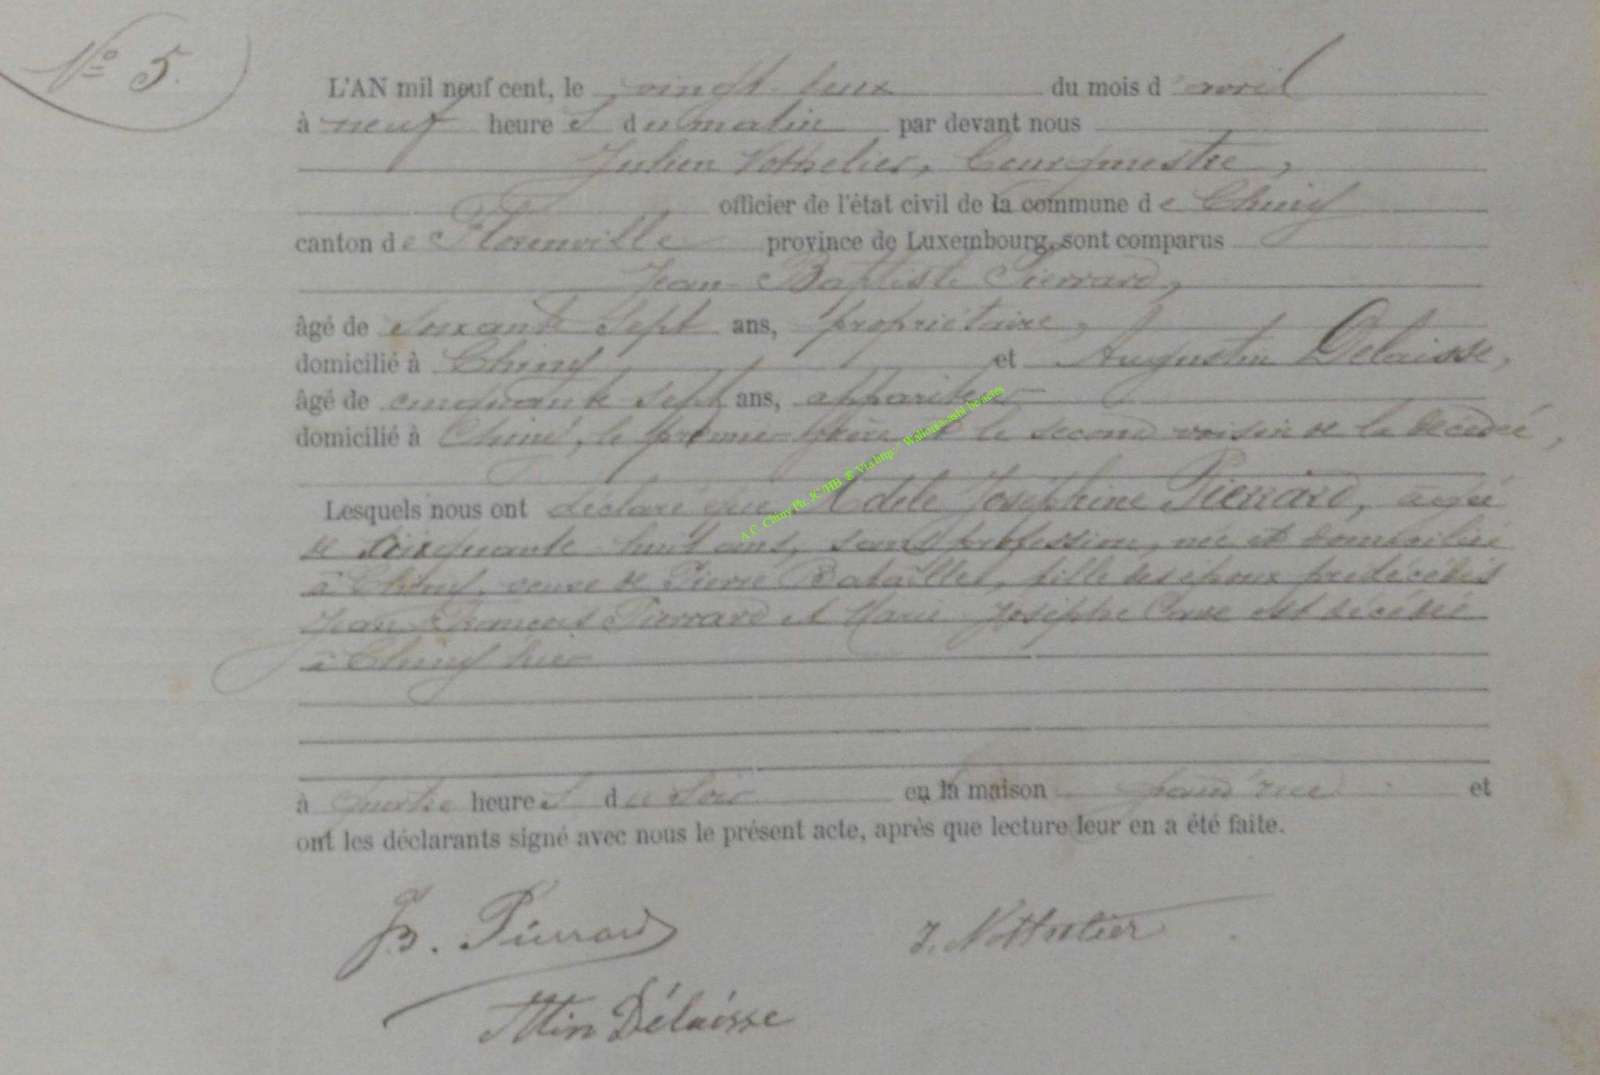 N° 5.
L'AN mil neuf cent, le vingt-deux du mois d'avril
à neuf heures du matin par devant nous
Julien Nothelier, bourgmestre,
officier de l'état civil de la commune de Chiny
canton de Florenville province de Luxembourg, sont comparus
Jean-Baptiste Pierrard,
âgé de soixante sept ans, propriétaire,
domicilié à Chiny et Augustin Delaisse,
âgé de cinquante sept ans, appariteur
domicilié à Chiny, le premier frère et le second voisin de la décédée,
Lesquels nous ont déclaré que Adèle Joséphine Pierrard, agée
de cinquante-huit ans, sans profession, née et domiciliée
à Chiny, veuve de Pierre Batailles, fille des époux prédécédés
Jean François Pierrard et Marie Josèphe est décédée
à Chiny hier
à quatre heures du soir en la maison et
ont les déclarants signé avec nous le présent acte, après que lecture leur en a été faite.
JB. Pierrard
J. Nothelier
Delaisse
A.C. Chiny Ph. JC/HB & Via http: Wallonia.asbl be actes